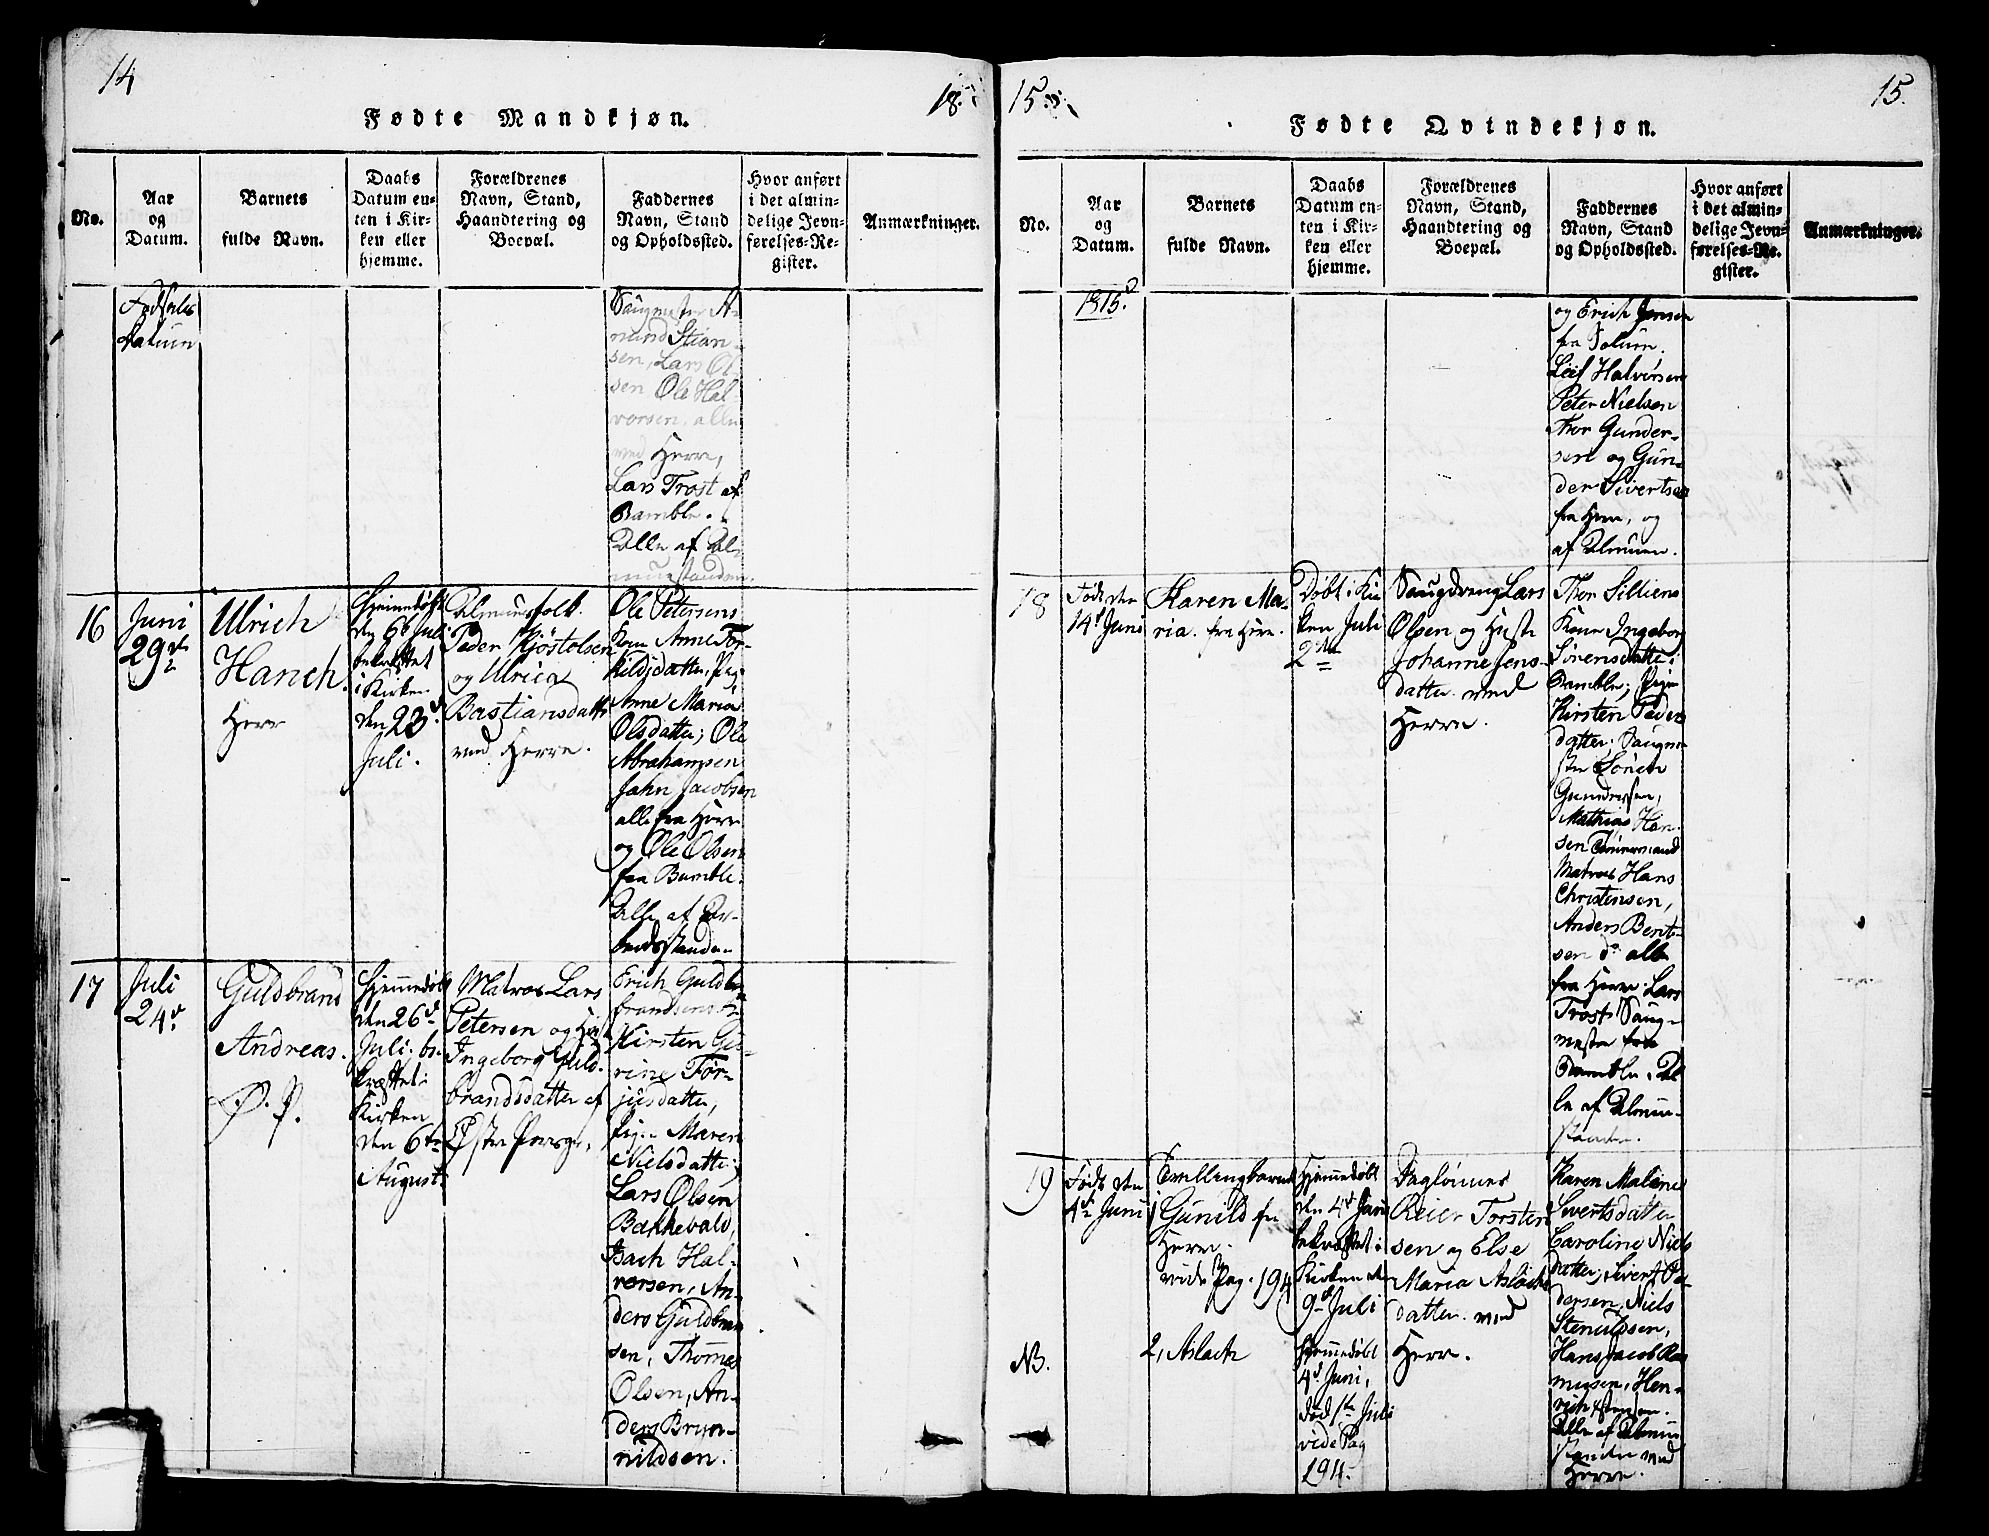 14
18
Fødte Mandkjøn.
No.
Aar
og
Datum.
Barnets
fulde Navn.
Daabs
Datum en-
ten i Kir-
ken eller
hjemme.
Forældrenes
Navn, Stand,
Haandtering og
Boepæl.
Faddernes
Navn, Stand
og Opholdssted.
Hvor anført
i det almin-
delige Jevn-
førelses-Re-
gister.
Anmærkninger.
Fødsels
Datum
Saugmester A-
mund Stian-
sen, Lars Ol-
sen Ole Hal-
vorsen, alle
ved Herre,
Lars Trost af
Bamble.
Alle af Al-
muestanden.
16
Juni
29de
Ulrich
Hanch.
Herre
Hjemmedøbt
den 6te Juli
bekræftet
i Kirken
den 23d
Juli.
Almuesfolk
Peder Kjøstolsen
og Ulrica
Bastiansdatter
ved Herre.
Ole Petersens
Kone Anne Tor-
kildsdatter, Pig.
Anne Maria
Olsdatter; Ole
Abrahamsen
John Jacobsen
alle fra Herre
og Ole Olsen
fra Bamble.
Alle af Ar-
beidsstanden
17
Juli
24d.
Guldbrand
Andreas.
Ø. P.
Hjemmedøbt
den 26d
Juli. be-
kræftet i
Kirken
den 6te
August.
Matros Lars
Petersen og Hust
Ingeborg Guld-
brandsdatter af
Øster Porsgr.
Erich Guld
brandsens K.
Kirsten Gu-
rine Tor-
jusdatter,
Pigen Maren
Nielsdatter;
Lars Olsen
Bakkevald,
Isach Hal-
vorsen, An-
ders Guldbran
sen, Thomas
Olsen, An-
ders Bryn-
nildsen.
15
15.
Fødte Qvindekjøn.
No.
Aar
og
Datum.
Barnets
fulde Navn.
Daabs
Datum en-
ten i Kir-
ken eller
hjemme.
Forældrenes
Navn, Stand,
Haandtering og
Boepæl.
Faddernes
Navn, Stand
og Opholdssted.
Hvor anført
i det almin-
delige Jevn-
førelses-Re-
gister.
Anmærkninger.
1815.
og Erich Jensen
fra Solum.
Leif Halvorsen
Peter Nielsen
Thor Gunder-
sen og Gun-
der Sivertsen
fra Herre, og
af Almuen.
18
Født den
14d Juni
Karen Ma-
ria. fra Herre.
Døbt i Kir
ken Juli
2den
Saugdreng Lars
Olsen og Hustr
Johanne Jens-
datter ved
Herre.
Thor Silliens
Kone Ingeborg
Sørensdatter i
Bamble; Pigen
Kirsten Peders
datter; Saugme-
ster Søren
Gundersen,
Mathias Han-
sen Tømmermand
Matros Hans
Christensen,
Anders Bent-
sen do alle
fra Herre. Lars
Trost Saug-
mester fra
Bamble. Al-
le af Almue-
standen.
19
Født den
4de Juni
Tvillingbarnet
1, Gunild fra
Herre.
vide Pag. 194
Hjemmedøbt
den 4d Juni
bekræftet i
Kirken den
9d Juli
Daglønner
Reier Torsten
sen og Else
Maria Aslachs
datter. ved
Herre.
Karen Maline
Sivertsdatter
Caroline Niels
datter; Sivert Pe-
dersen, Niels
Stenuldsen,
Hans Jacob Ras
musen, Hen-
rich Jensen.
Alle af Almue
standen ved
Herre.
NB.
2, Aslach
Hjemmedøbt
4d Juni,
død 1ste Juli
vide Pag
194.